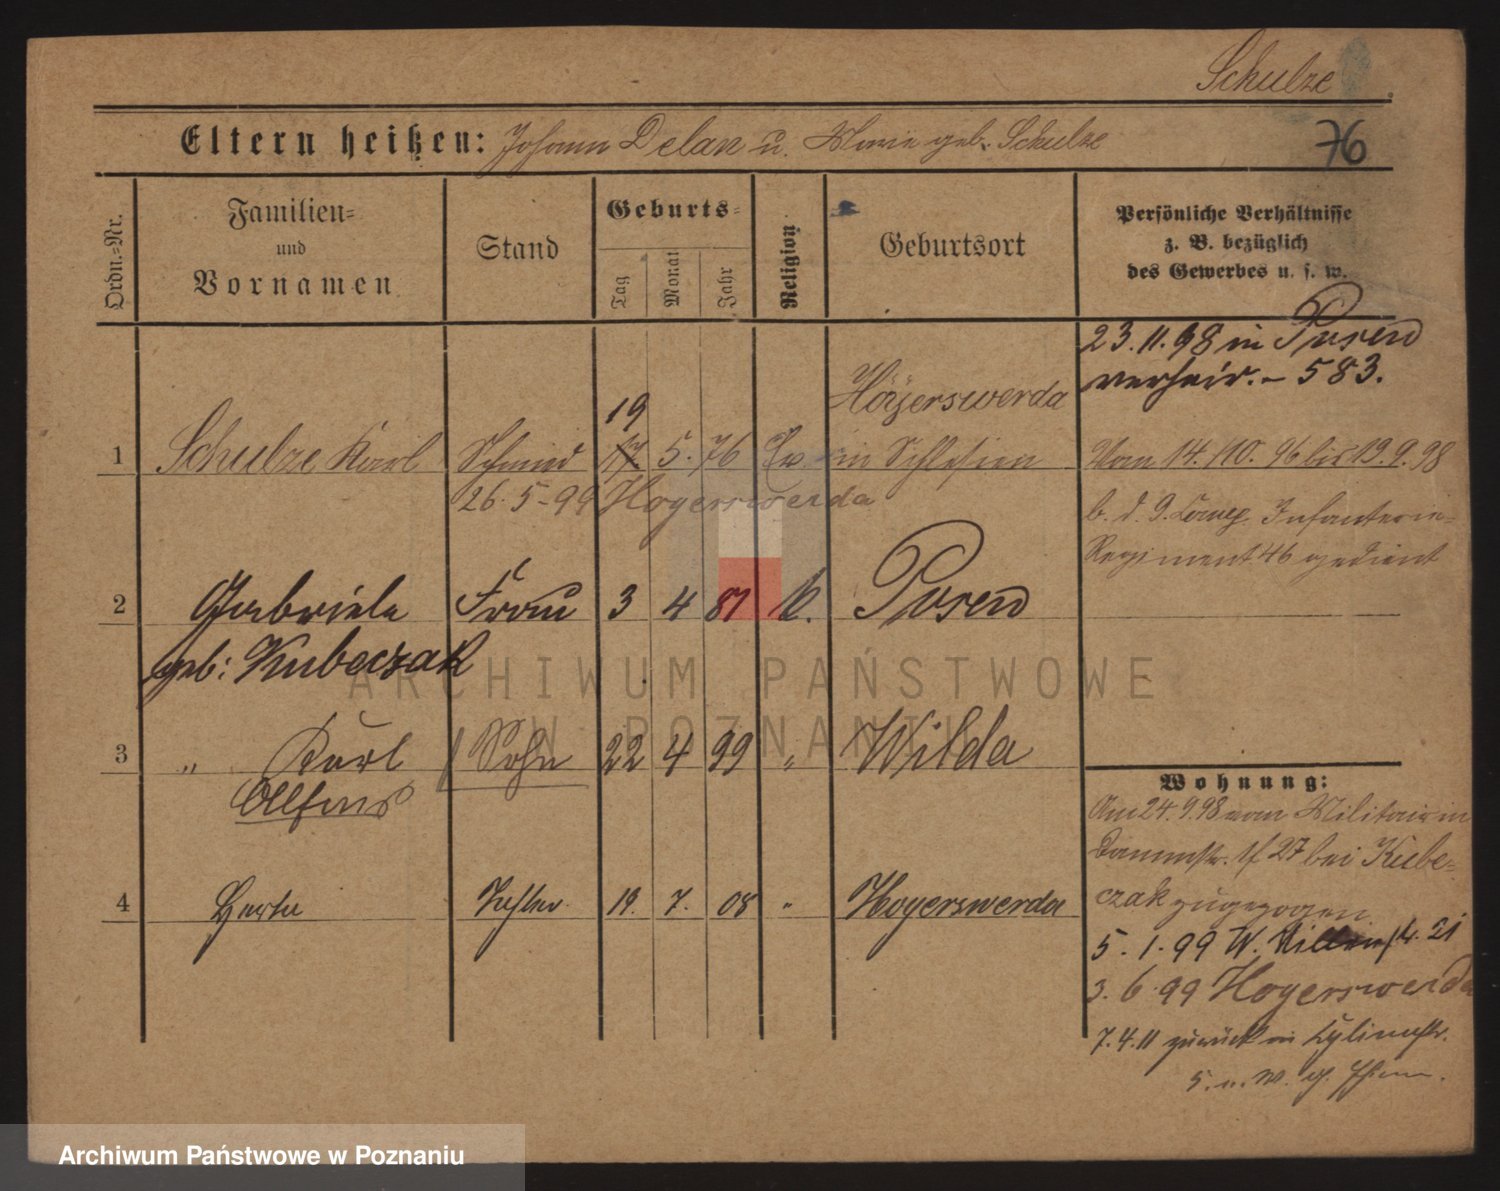 Schulze
Eltern heißen: Johann Delan u. Marie geb. Schulze
76
Ordn.=Nr.
Familien=
und
Vornamen
Stand
Geburts=
Tag
Monat
Jahr
Religion
Geburtsort
Persönliche Verhältnisse
z. B. bezüglich
des Gewerbes u. s. w.
23.11.98 in Posen
verheir. - 583.
1 Schulze Karl Schmied 17 19 5. 76 Ev Hoyerswerda
in Schlesien
26.5-99 Hoyerswerda
Vom 14./10. 96 bis 19.9.98
b. d. 9. Comp. Infanterie=
Regiment 46 gedient
2 Gabriele Frau 3 4 81 k. Posen
geb: Kubeczak
3 " Karl Sohn 22 4 99 " Wilda
Alfons
4 Herta Tochter 19. 7. 08 " Hoyerswerda
Wohnung:
Am 24.9.98 vom Militair in
Dammstr. 27 bei Kube=
czak zugezogen
5.1.99 W. 21
3.6.99 Hoyerswerda
7.4.11 zurück in
5. u. W.
ARCHIWUM PAŃSTWOWE
W POZNANIU
Archiwum Państwowe w Poznaniu